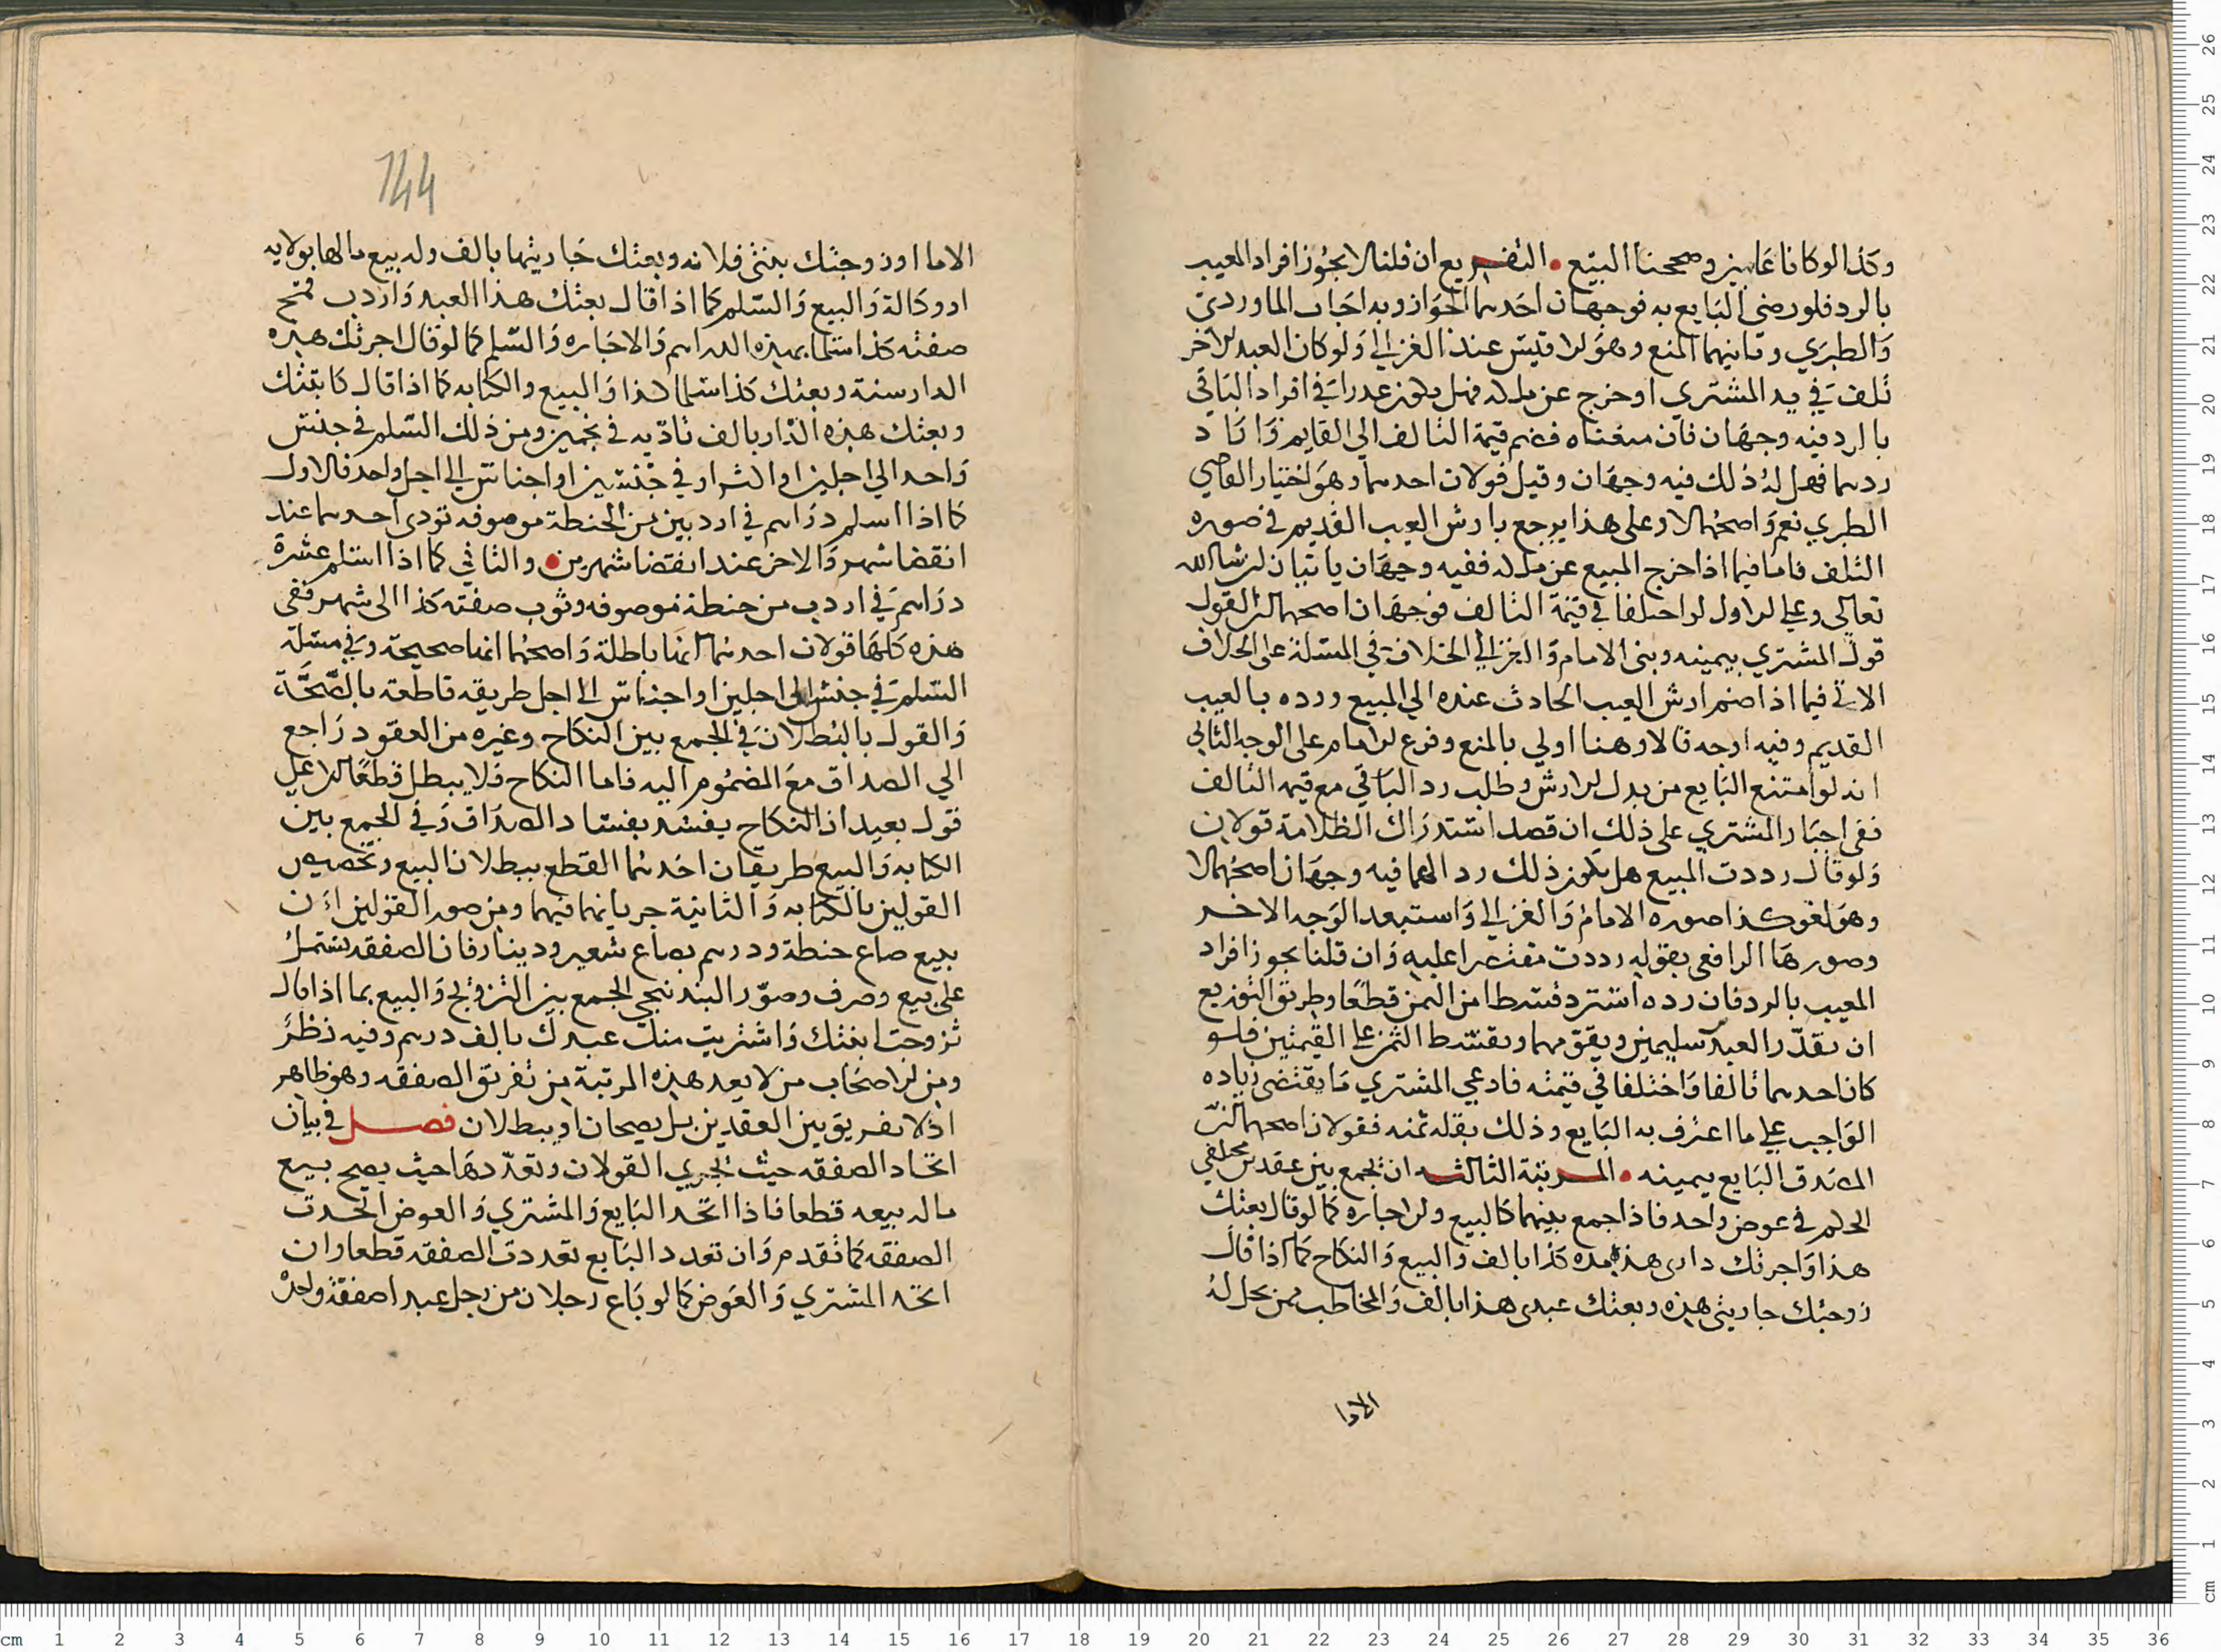 وكذا لو كانا غايبين وصححنا البيع • التفريع ان قلنا لا يجوز افراد المعيب
بالرد فلو رضي البايع به فوجهان احدهما الجواز وبه اجاب الماوردي
والطبري وثانيهما المنع وهو الاقيس عند الغزالي ولو كان العبد الاخر
تلف في يد المشتري او خرج عن ملكه فهل يكون عذرا في افراد الباقي
بالرد فيه وجهان فان منعناه فضم قيمة التالف الي القايم واراد
ردهما فهل له ذلك فيه وجهان وقيل قولان احدهما وهو اختيار القاضي
الطبري نعم واصحهما لا وعلى هذا يرجع بارش العيب القديم في صوره
التلف فاما فيما اذا خرج المبيع عن ملكه ففيه وجهان ياتيان ان شا الله
تعالى وعلي الاول لو اختلفا في قيمة التالف فوجهان اصحهما ان القول
قول المشتري بيمينه وبنى الامام والغزالي الخلاف في المسئلة على الخلاف
الاتي فيما اذا ضم ارش العيب الحادث عنده الي المبيع ورده بالعيب
القديم وفيه اوجه قالا وهنا اولي بالمنع وفرع الامام على الوجه الثاني
انه لو امتنع البايع من بدل الارش وطلب رد الباقي مع قيمه التالف
ففي اجبار المشتري على ذلك ان قصد استدراك الظلامة قولان
ولو قال رددت المبيع هل يكون ذلك ردا لهما فيه وجهان اصحهما لا
وهو لغو كذا صوره الامام والغزالي واستبعد الوجه الاخر
وصورها الرافعي بقوله رددت مقتصرا عليه وان قلنا يجوز افراد
المعيب بالرد فان رده استرد قسطا من الثمن قطعا وطريق التوزيع
ان يقدر العبد سليمين ويقومهما ويقسط الثمن على القيمتين فلو
كان احدهما تالفا واختلفا في قيمته فادعي المشتري ما يقتضي زياده
الواجب علي ما اعترف به البايع وذلك بقله ثمنه فقولان اصحهما ان
المصدق البايع بيمينه • المرتبة الثالثه ان يجمع بين عقدين مختلفي
الحكم في عوض واحد فاذا جمع بينهما كالبيع والاجاره كما لو قال بعتك
هذا واجرتك داري هذه مده كذا بالف والبيع والنكاح كما اذا قال
زوجتك جاريتي هذه وبعتك عبدي هذا بالف والمخاطب ممن يحل له
الاما
144
الاما او زوجتك بنتي فلانه وبعتك جاريتها بالف وله بيع مالها بولايه
او وكالة والبيع والسلم كما اذا قال بعتك هذا العبد واردب قمح
صفته كذا سلما بهذه الدراهم والاجاره والسلم كما لو قال اجرتك هذه
الدار سنة وبعتك كذا سلما بكذا والبيع والكتابه كما اذا قال كاتبتك
وبعتك هذه الدار بالف تاديه في نجمين ومن ذلك السلم في جنس
واحد الي اجلين او اكثر او في جنسين او اجناس الي اجل واحد فالاول
كما اذا اسلم دراهم في اردبين من الحنطة موصوفه تودى احدهما عند
انقضا شهر والاخر عند انقضا شهرين • والثاني كما اذا اسلم عشرة
دراهم في اردب من حنطة موصوفه وثوب صفته كذا الى شهر ففي
هذه كلها قولان احدهما انها باطلة واصحهما انها صحيحة وفي مسئلة
السلم في جنس الى اجلين او اجناس الي اجل طريقه قاطعة بالصحة
والقول بالبطلان في الجمع بين النكاح وغيره من العقود راجع
الي الصداق مع المضموم اليه فاما النكاح فلا يبطل قطعا الا على
قول بعيد ان النكاح يفسد بفساد الصداق وفي الجمع بين
الكتابه والبيع طريقان احدهما القطع ببطلان البيع وتخصيص
القولين بالكتابه والثانية جريانهما فيهما ومن صور القولين ان
بيع صاع حنطة ودرهم بصاع شعير ودينار فان الصفقه تشتمل
على بيع وصرف وصور البندنيجي الجمع بين التزويج والبيع بما اذا قال
تزوجت ابنتك واشتريت منك عبدك بالف درهم وفيه نظر
ومن الاصحاب من لا يعد هذه المرتبة من تفريق الصفقه وهو ظاهر
اذ لا تفريق بين العقدين بل يصحان او يبطلان فصل في بيان
اتحاد الصفقه حيث يجري القولان وتعددها حيث يصح بيع
ماله بيعه قطعا فاذا اتحد البايع والمشتري والعوض اتحدت
الصفقه كما تقدم وان تعدد البايع تعددت الصفقه قطعا وان
اتحد المشتري والعوض كما لو باع رجلان من رجل عبدا صفقة واحدة